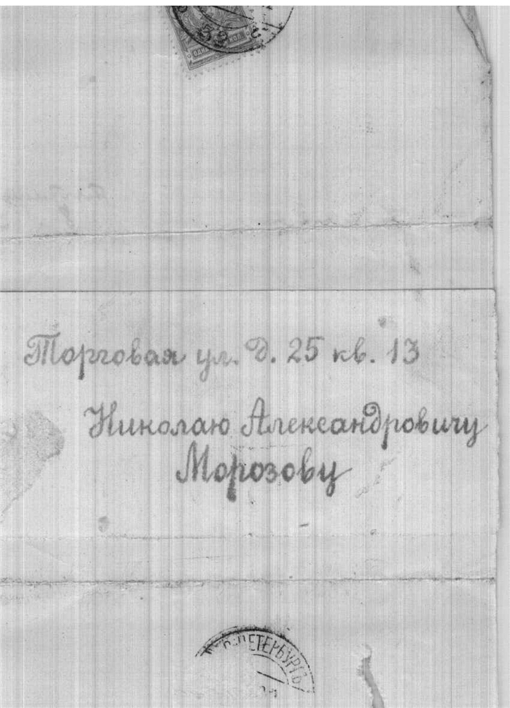 Торговая ул. д. 25 кв. 13
Николаю Александровичу
Морозову